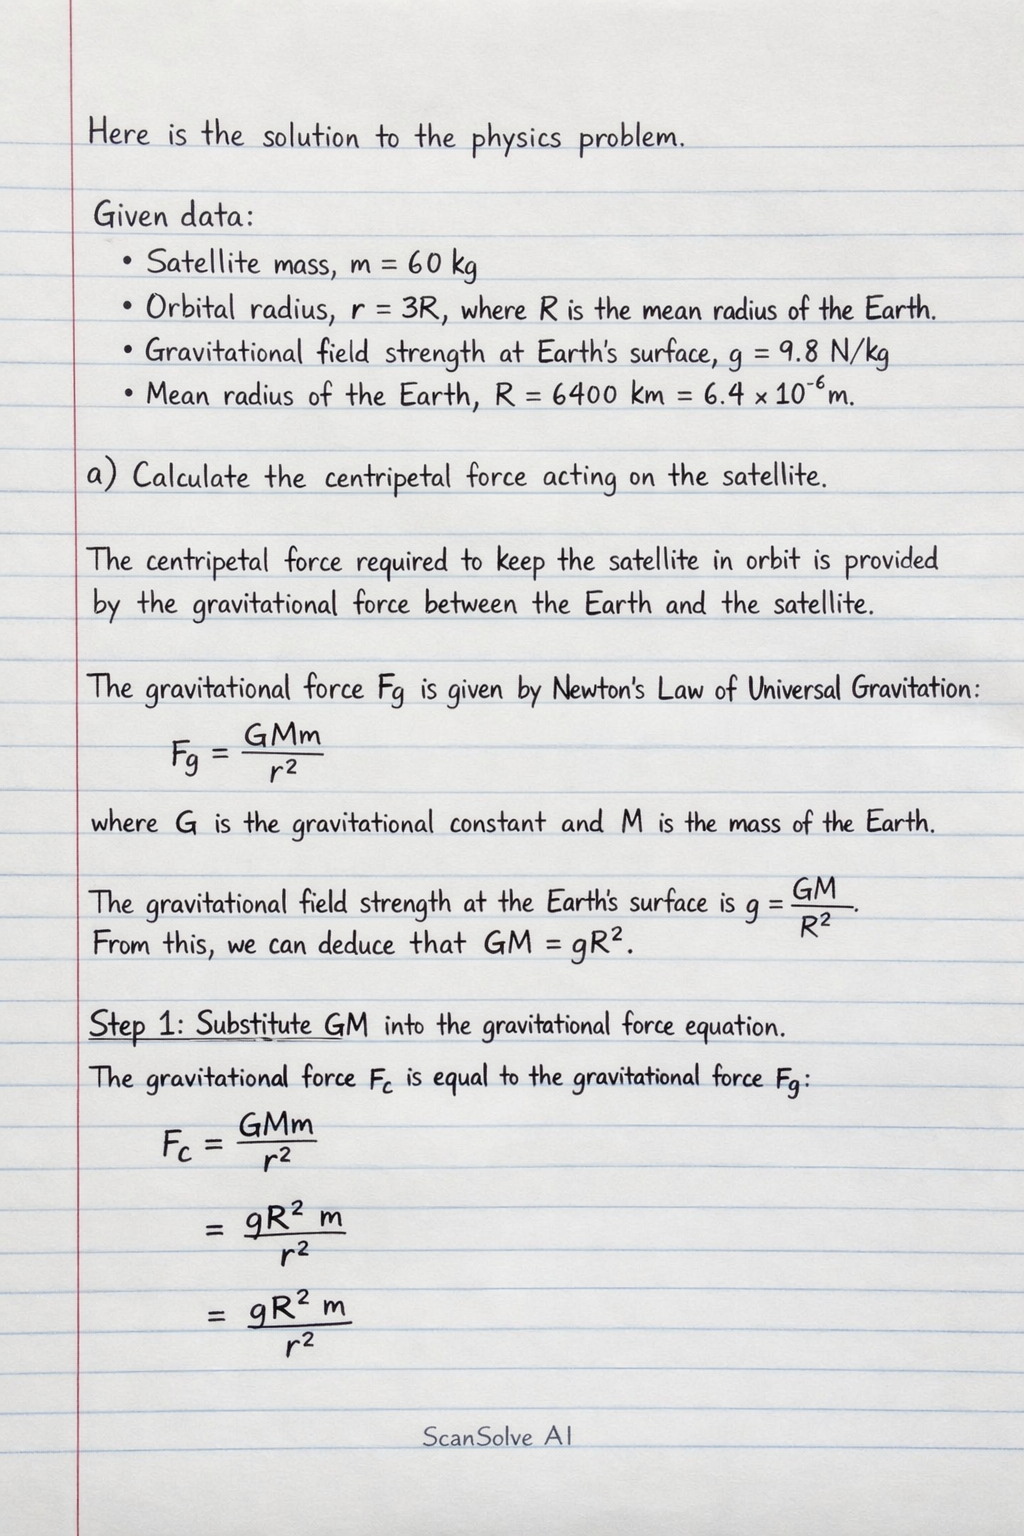 Here is the solution to the physics problem.
Given data:
• Satellite mass, m = 60 kg
• Orbital radius, r = 3R, where R is the mean radius of the Earth.
• Gravitational field strength at Earth's surface, g = 9.8 N/kg
• Mean radius of the Earth, R = 6400 km = 6.4 × 10⁻⁶ m.
a) Calculate the centripetal force acting on the satellite.
The centripetal force required to keep the satellite in orbit is provided
by the gravitational force between the Earth and the satellite.
The gravitational force Fg is given by Newton's Law of Universal Gravitation:
Fg = GMm / r²
where G is the gravitational constant and M is the mass of the Earth.
The gravitational field strength at the Earth's surface is g = GM / R².
From this, we can deduce that GM = gR².
Step 1: Substitute GM into the gravitational force equation.
The gravitational force Fc is equal to the gravitational force Fg:
Fc = GMm / r²
= gR² m / r²
= gR² m / r²
ScanSolve AI